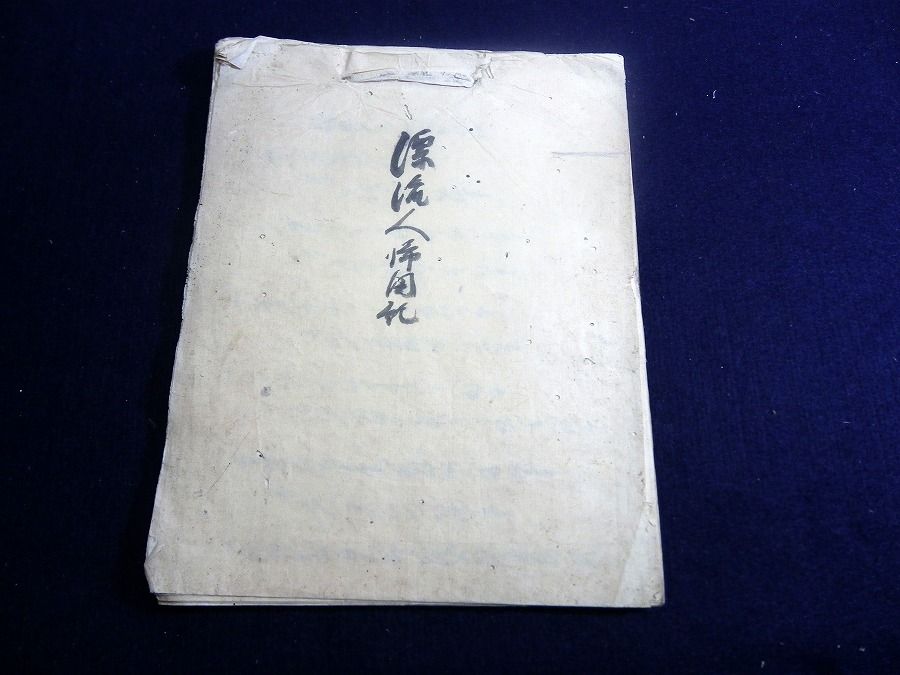 漂流人帰国記